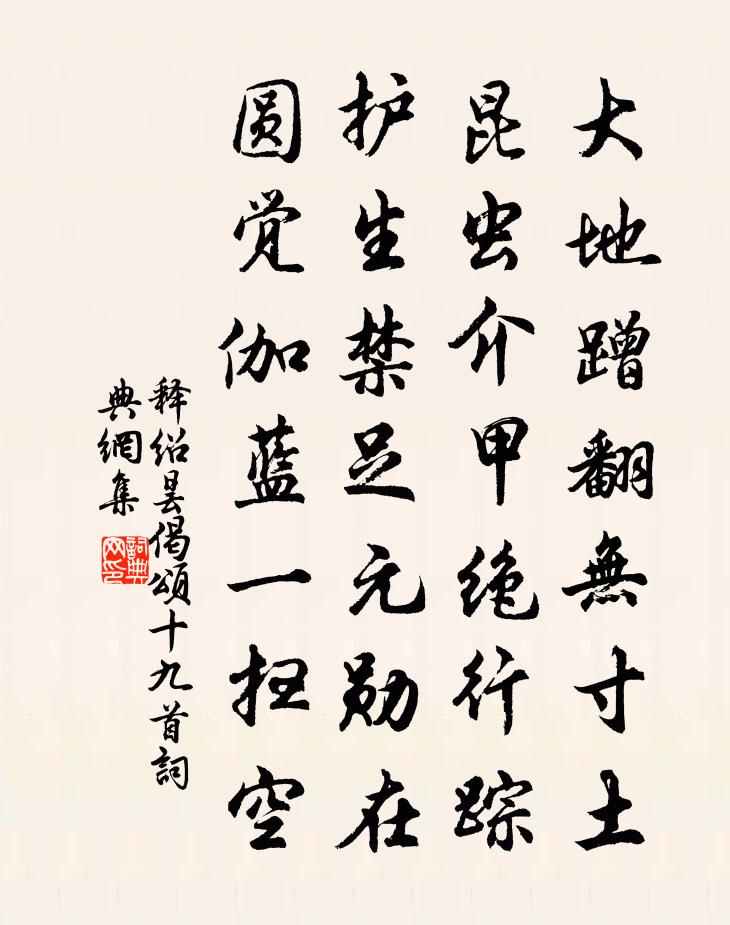 大地蹭翻無寸土
昆虫介甲绝行踪
护生禁足元勋在
圆觉伽蓝一扫空
释绍昙偈頌十九首詞
典網集
詞典
网印